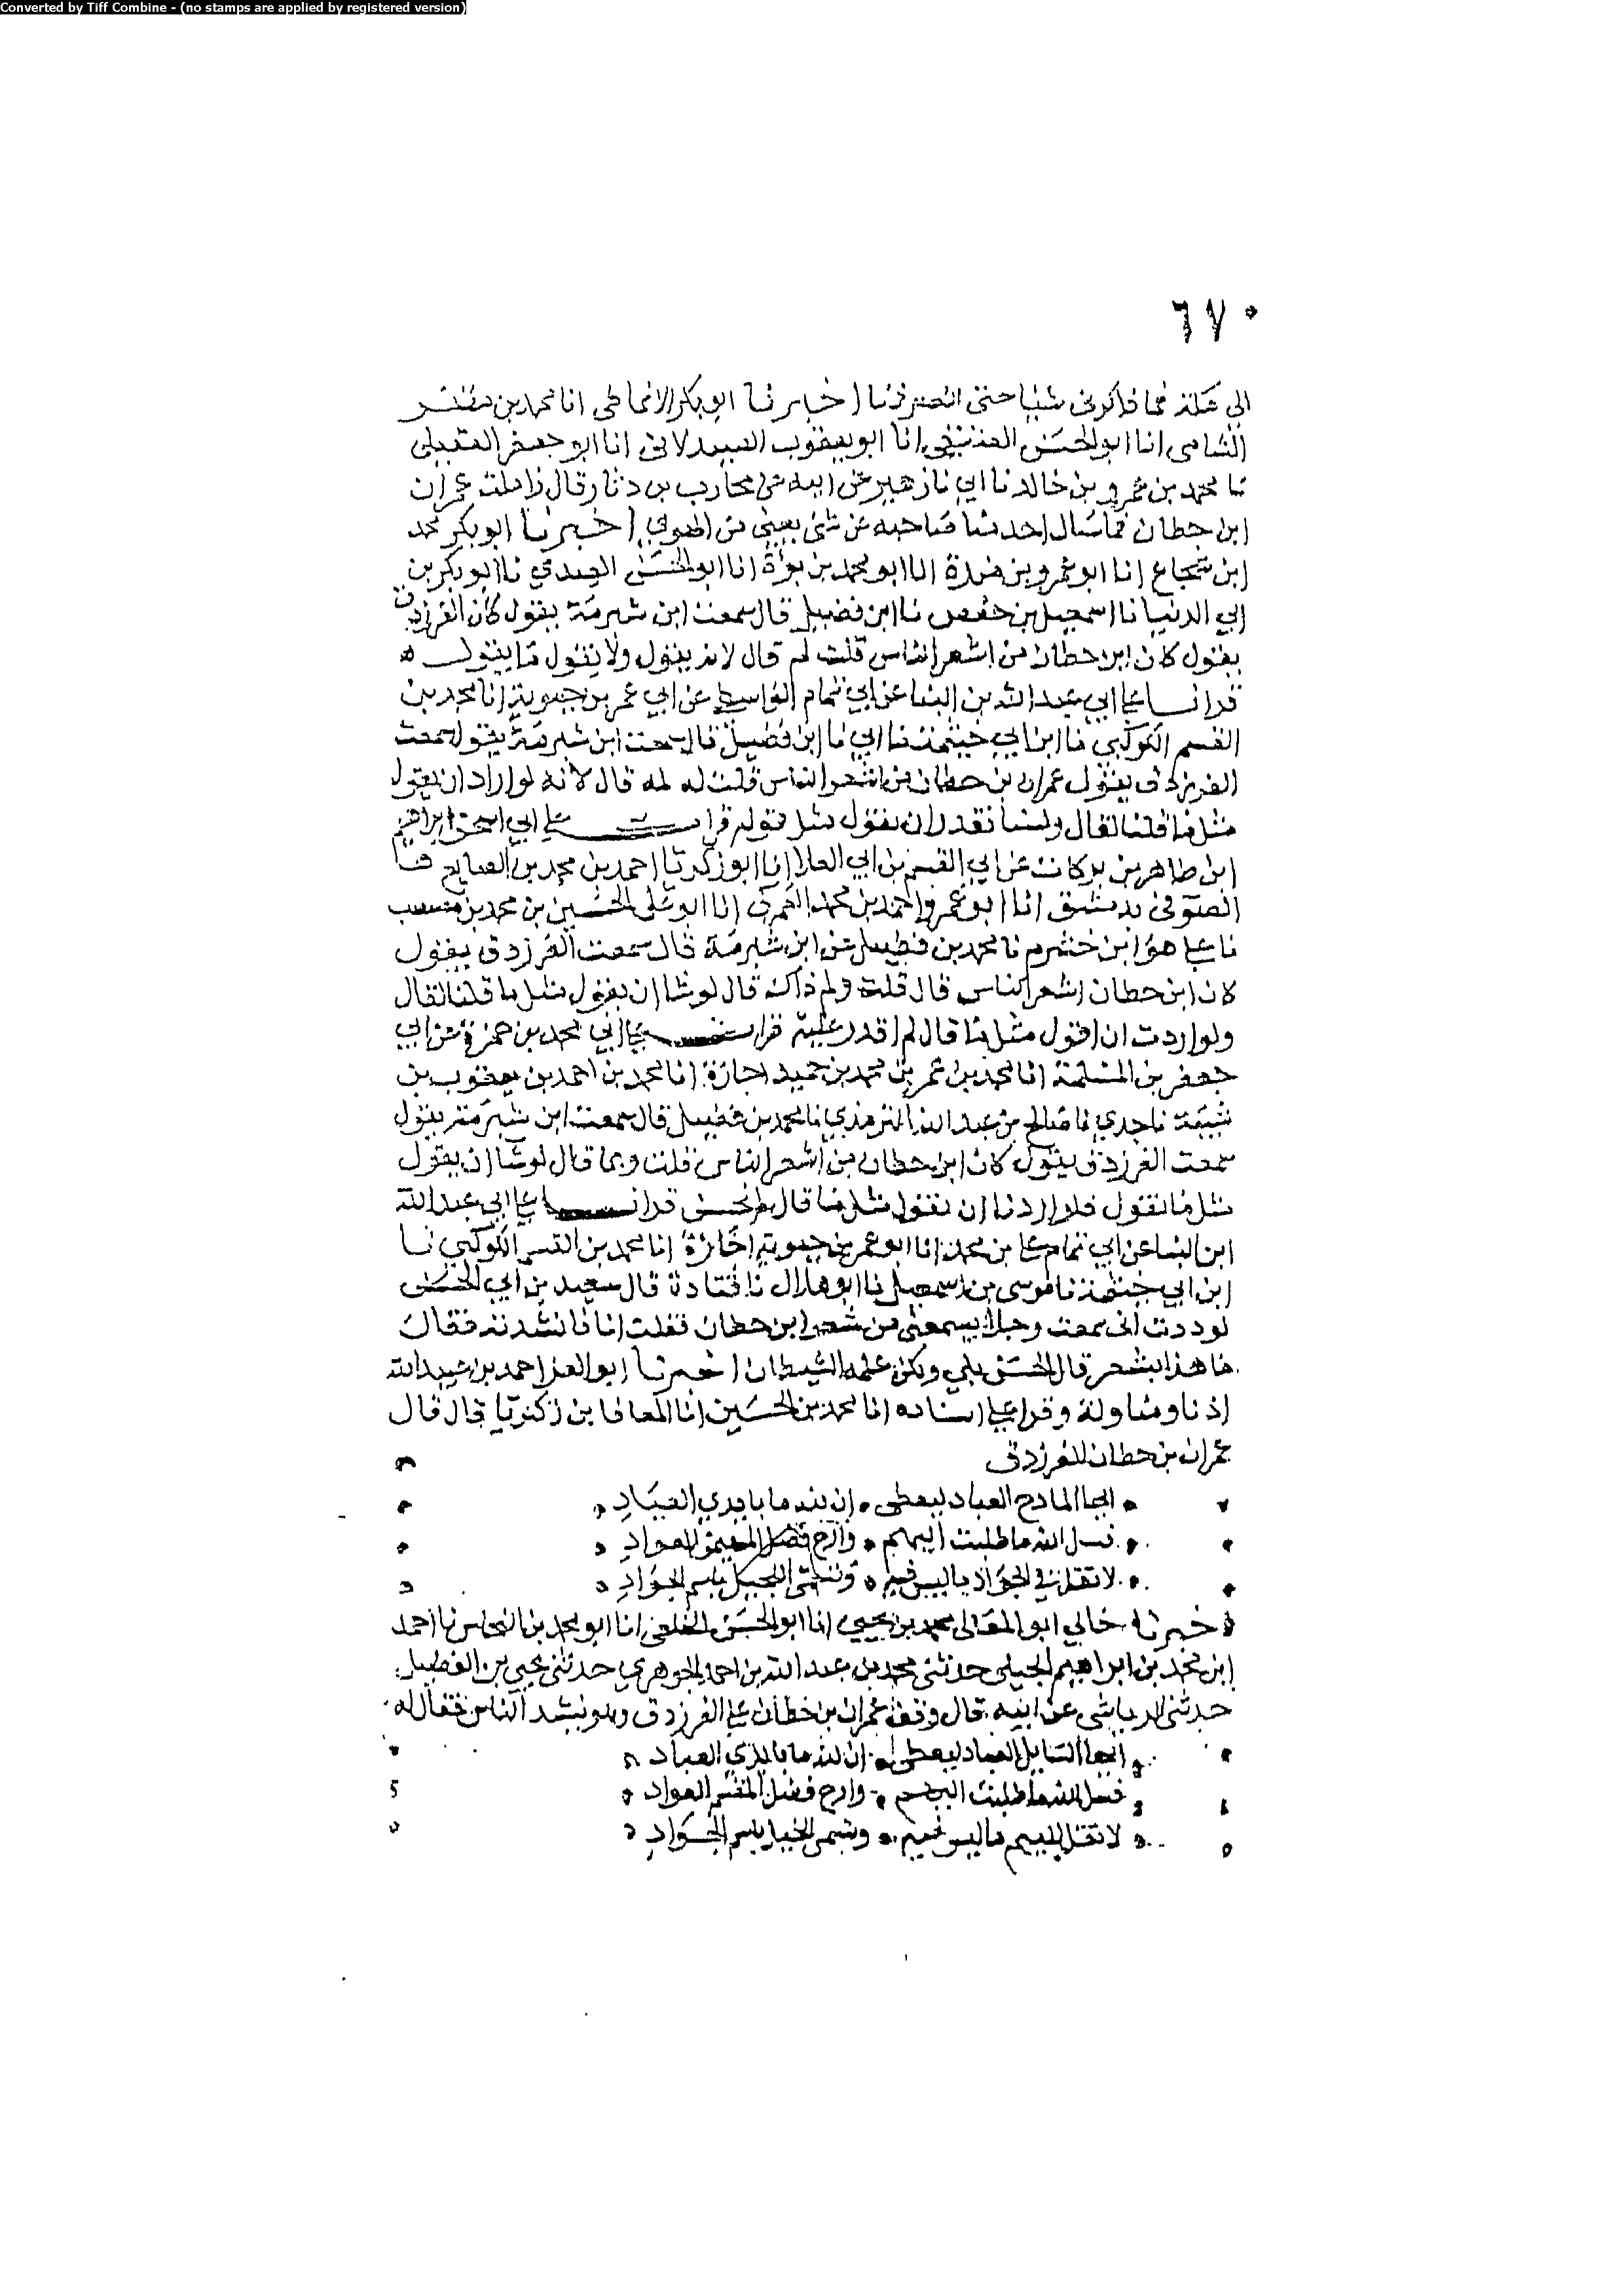 Converted by Tiff Combine - (no stamps are applied by registered version)
٦٧٠
الى مكة فما ذاكرني شيئا حتى انصرفنا اخبرنا ابو بكر الانماطي انا محمد بن مظفر
الشامي انا ابو الحسن العتيقي انا ابو يعقوب الصيدلاني انا ابو جعفر العقيلي
نا محمد بن عمرو بن خالد نا ابي نا زهير عن ابيه عن محارب بن دثار قال زاملت عمران
ابن حطان فما سال احدنا صاحبه عن شي يعني من الهوى اخبرنا ابو بكر محمد
ابن شجاع انا ابو عمرو بن مندة انا ابو محمد بن يوة انا ابو الحسن العبدي نا ابو بكر بن
ابي الدنيا نا اسمعيل بن حفص نا ابن فضيل قال سمعت ابن شبرمة يقول كان الفرزدق
يقول كان ابن حطان من اشعر الناس قلت لم قال لانه يقول ولا نقول ما يقول
قرانا على ابي عبد الله بن البنا عن ابي تمام الواسطي عن ابي عمر بن حيوية انا محمد بن
القسم الكوكبي نا ابن ابي خيثمة نا ابي نا ابن فضيل قال سمعت ابن شبرمة يقول سمعت
الفرزدق يقول عمران بن حطان من اشعر الناس قلت له لمه قال لانه لو اراد ان يقول
مثل ما قلنا لقال ولسنا نقدر ان نقول مثل قوله قرات على ابي اسحق ابراهيم
ابن طاهر بن بركات عن ابي القسم بن ابي العلا انا ابو زكريا احمد بن محمد بن الصايح
الصوفي بدمشق انا ابو عمرو احمد بن محمد العمري انا ابو علي الحسين بن محمد بن مصعب
نا علي هو ابن خشرم نا محمد بن فضيل عن ابن شبرمة قال سمعت الفرزدق يقول
كان ابن حطان اشعر الناس قال قلت ولم ذاك قال لو شا ان يقول مثل ما قلنا لقال
ولو اردت ان اقول مثل ما قال لم اقدر عليه قرات على ابي محمد بن حمزة عن ابي
جعفر بن المسلمة انا محمد بن عمر بن محمد بن حميد اجازة انا محمد بن احمد بن يعقوب بن
شيبة نا جدي نا صالح بن عبد الله الترمذي نا محمد بن فضيل قال سمعت ابن شبرمة يقول
سمعت الفرزدق يقول كان ابن حطان من اشعر الناس قلت وبما قال لو شا ان يقول
مثل ما نقول فلو اردنا ان نقول مثل ما قال لم نحسن قرانا على ابي عبد الله
ابن البنا عن ابي تمام علي بن محمد انا ابو عمر بن حيوية اجازة انا محمد بن القسم الكوكبي نا
ابن ابي خيثمة نا موسى بن اسمعيل نا ابو هلال نا قتادة قال سعيد بن ابي الحسن
لوددت اني سمعت رجلا يسمعني من شعر ابن حطان فقلت انا فانشدته فقال
ما هذا بشعر قال الحسن بلى ولكن علمه الشيطان اخبرنا ابو العز احمد بن عبيد الله
اذنا ومناولة وقرا علي اسناده انا محمد بن الحسين انا المعافا بن زكريا قال قال
عمران بن حطان للفرزدق
ايها المادح العباد ليعطى ان لله ما بايدي العباد
فسل الله ما طلبت اليهم وارج فضل المقسم العواد
لا تقل في الجواد ما ليس فيه وتسمى البخيل باسم الجواد
اخبرنا خالي ابو المعالي محمد بن يحيى انا ابو الحسن الخلعي انا ابو محمد بن النحاس نا احمد
ابن محمد بن ابراهيم الجبلي حدثني محمد بن عبد الله بن احمد الجوهري حدثني يحيى بن الفضيل
حدثني الرياشي عن ابيه قال وقف عمران بن حطان على الفرزدق وهو ينشد الناس فقال له
ايها السايل العباد ليعطى ان لله ما بايدي العباد
فسل الله ما طلبت اليهم وارج فضل المقسم العواد
لا تقل لليم ما ليس فيه وتسمى البخيل باسم الجواد